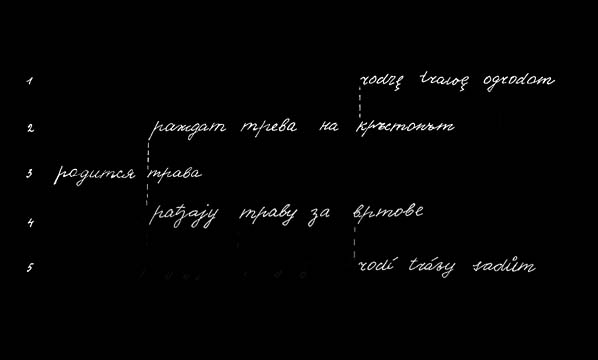 1 rodzę trawę ogrodom
2 раждат трева на кръстопът
3 родится трава
4 рађају траву за вртове
5 rodí trávy sadům